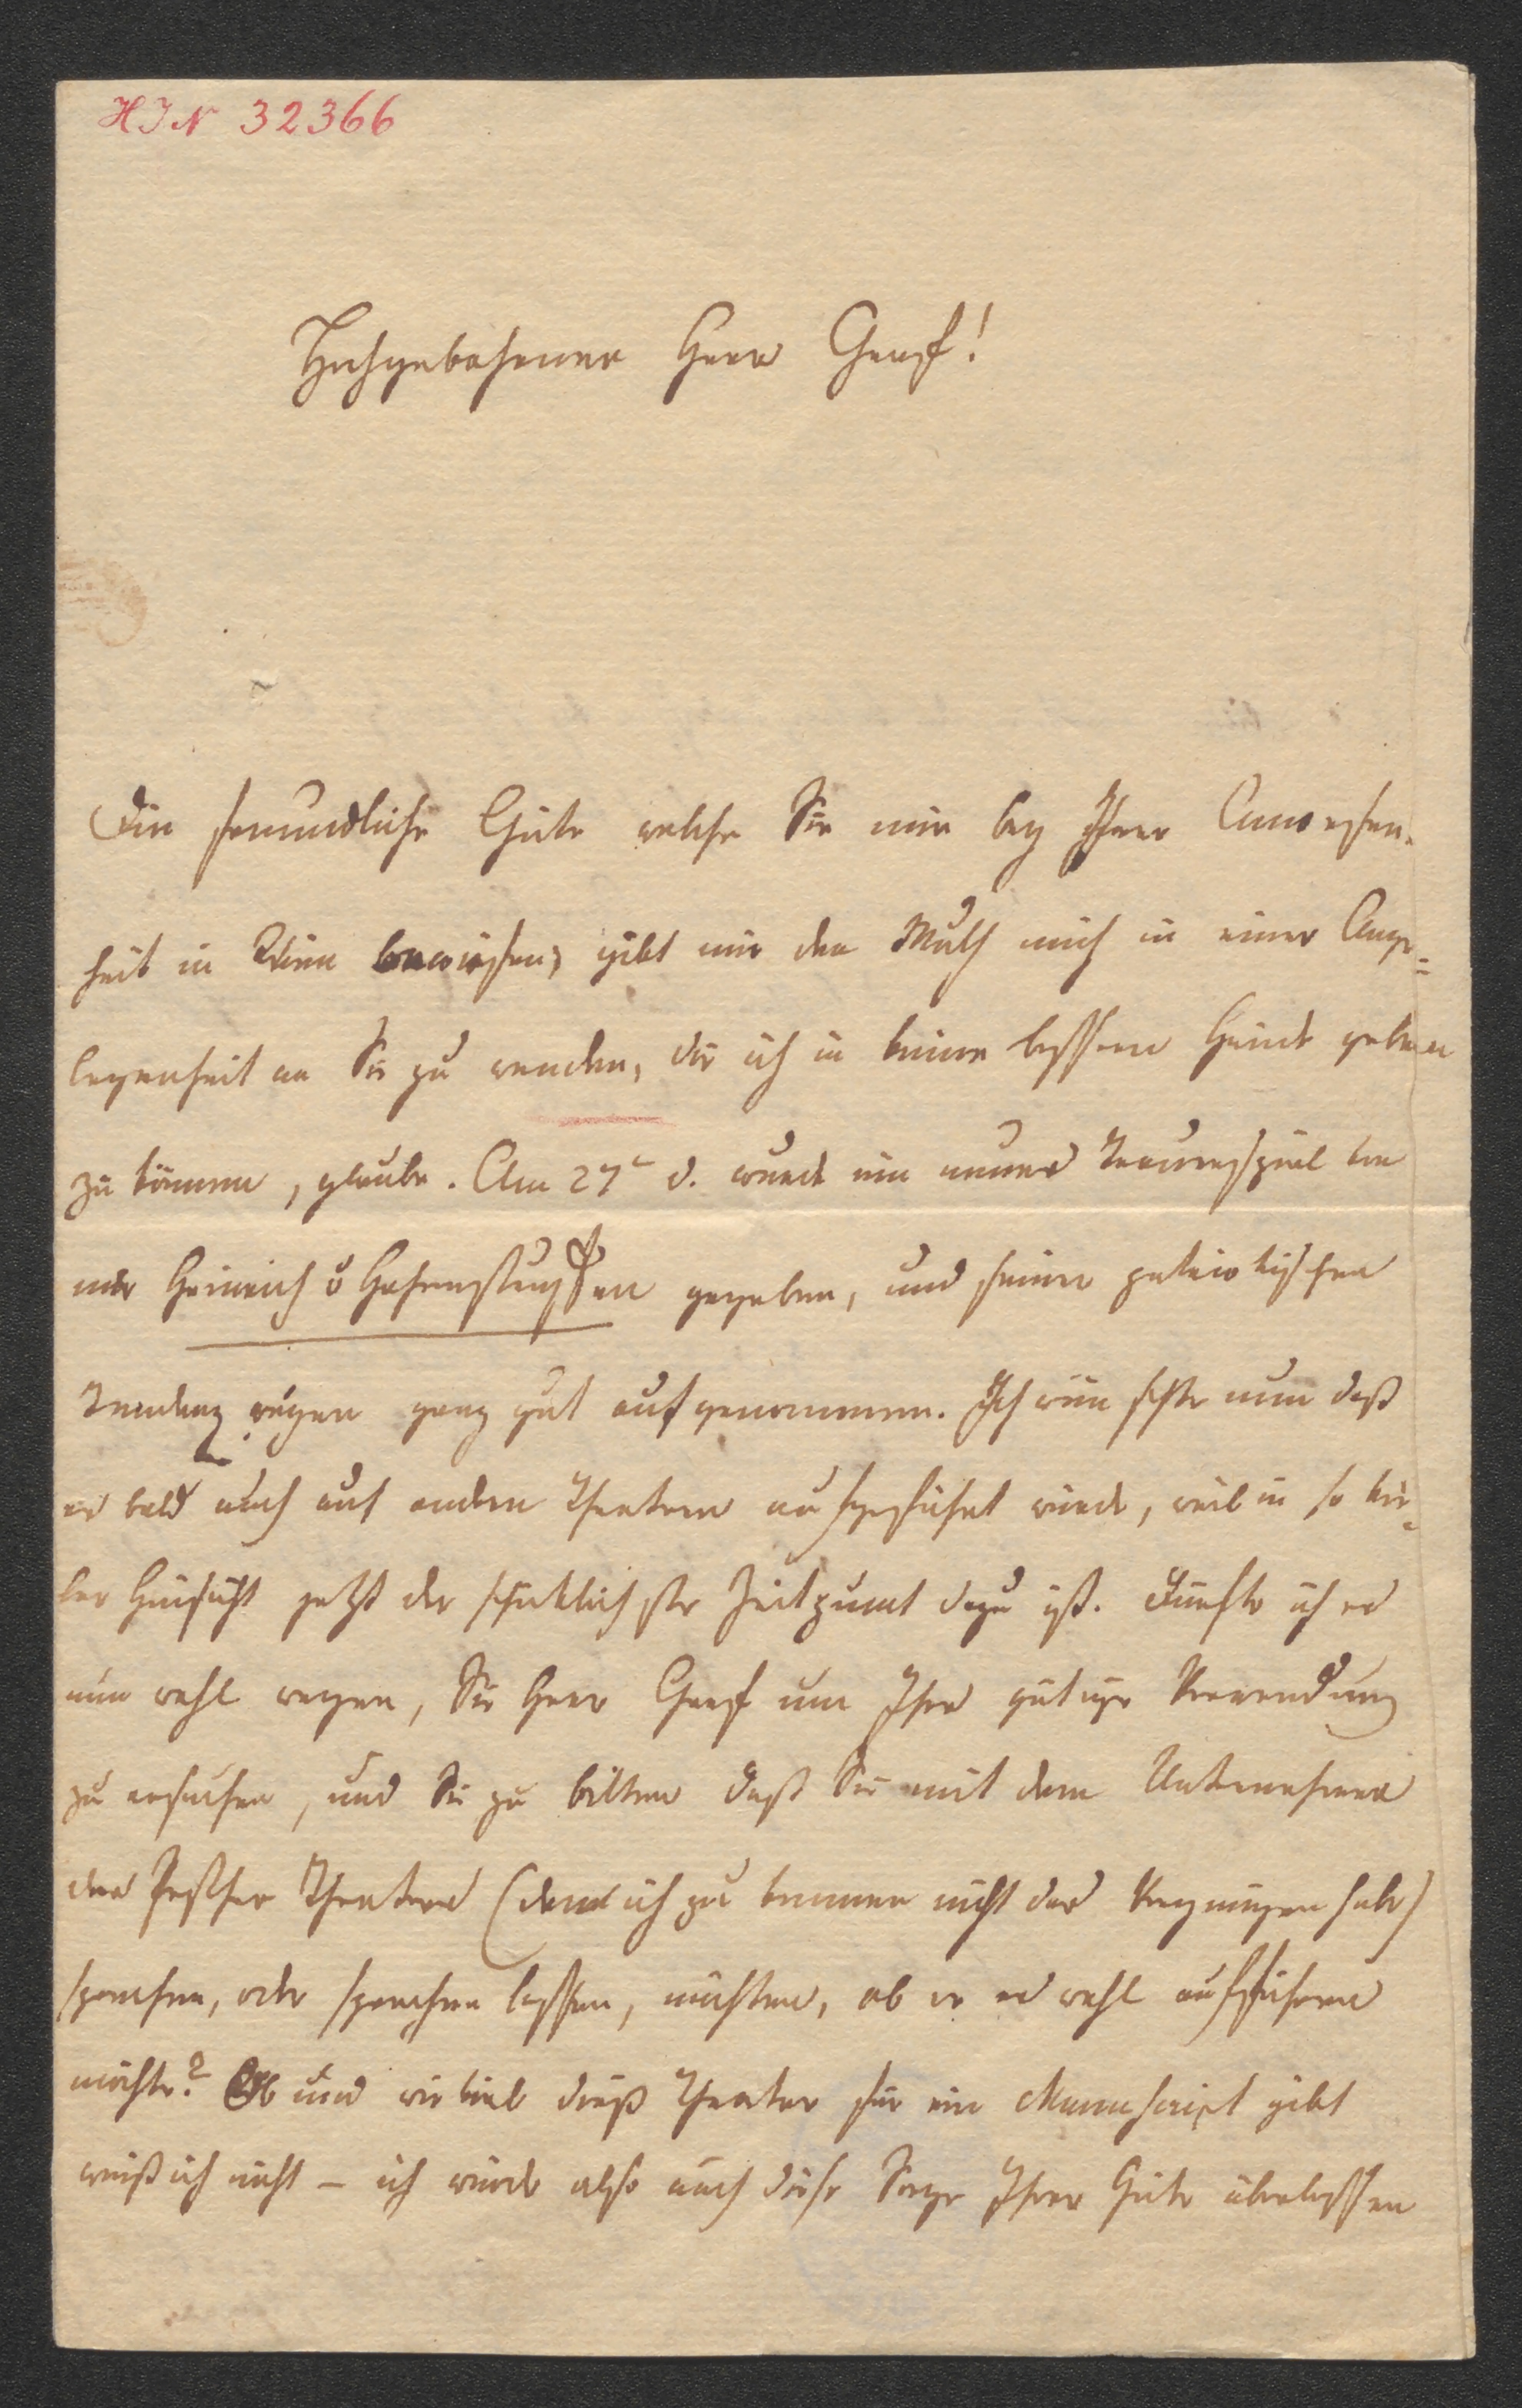 HIN 32366
Hochgebohrner Herr Graf!
Die freundliche Güte welche Sie mir bey Ihrer Anwesen-
heit in Wien bewiesen, gibt mir den Muth mich in einer Ange=
legenheit an Sie zu wenden, die ich in keine bessern Hände geben
zu können, glaube. Am 27t d. wurde ein neues Trauerspiel von
mir Heinrich v Hohenstauffen gegeben, und seiner patriotischen
Tendenz wegen ganz gut aufgenommen. Ich wünschte nun daß
es bald auch auf andern Theatern aufgeführt würde, weil in so vie=
ler Hinsicht jetzt der schicklichste Zeitpunct dazu ist. Dürfte ich es
nun wohl wagen, Sie Herr Graf um Ihre gütige Verwendung
zu ersuchen, und Sie zu bitten daß Sie mit dem Unternehmer
des Pesther Theaters (den ich zu kennen nicht das Vergnügen habe)
sprechen, oder sprechen lassen, möchten, ob er es wohl aufführen
möchte? Ob und wie viel dieß Theater für ein Manuscript gibt
weiß ich nicht – ich würde also auch diese Sorge Ihrer Güte überlassen